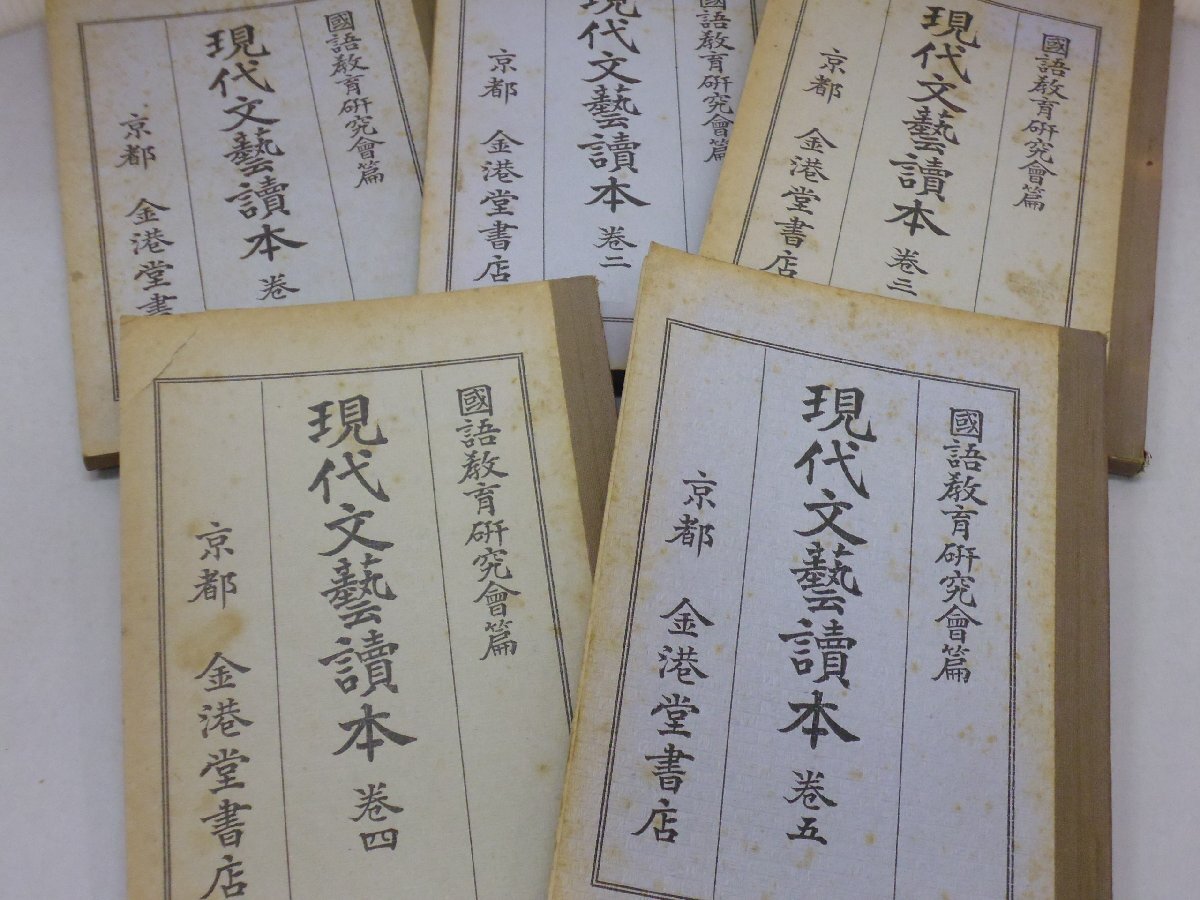 國語敎育硏究會篇
現代文藝讀本 卷
京都 金港堂書
國語敎育硏究會篇
現代文藝讀本 卷二
京都 金港堂書店
國語敎育硏究會篇
現代文藝讀本 卷三
京都 金港堂書店
國語敎育硏究會篇
現代文藝讀本 卷四
京都 金港堂書店
國語敎育硏究會篇
現代文藝讀本 卷五
京都 金港堂書店